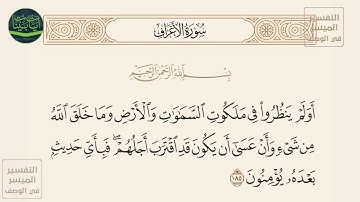 سُورَةُ الأَعْرَافِ
التفسير
الميسر
في الوصف
بِسْمِ اللَّهِ الرَّحْمَٰنِ الرَّحِيمِ
أَوَلَمْ يَنظُرُوا۟ فِى مَلَكُوتِ ٱلسَّمَٰوَٰتِ وَٱلْأَرْضِ وَمَا خَلَقَ ٱللَّهُ
مِن شَىْءٍ وَأَنْ عَسَىٰٓ أَن يَكُونَ قَدِ ٱقْتَرَبَ أَجَلُهُمْ ۖ فَبِأَىِّ حَدِيثٍۭ
بَعْدَهُۥ يُؤْمِنُونَ ١٨٥
التفسير
الميسر
في الوصف